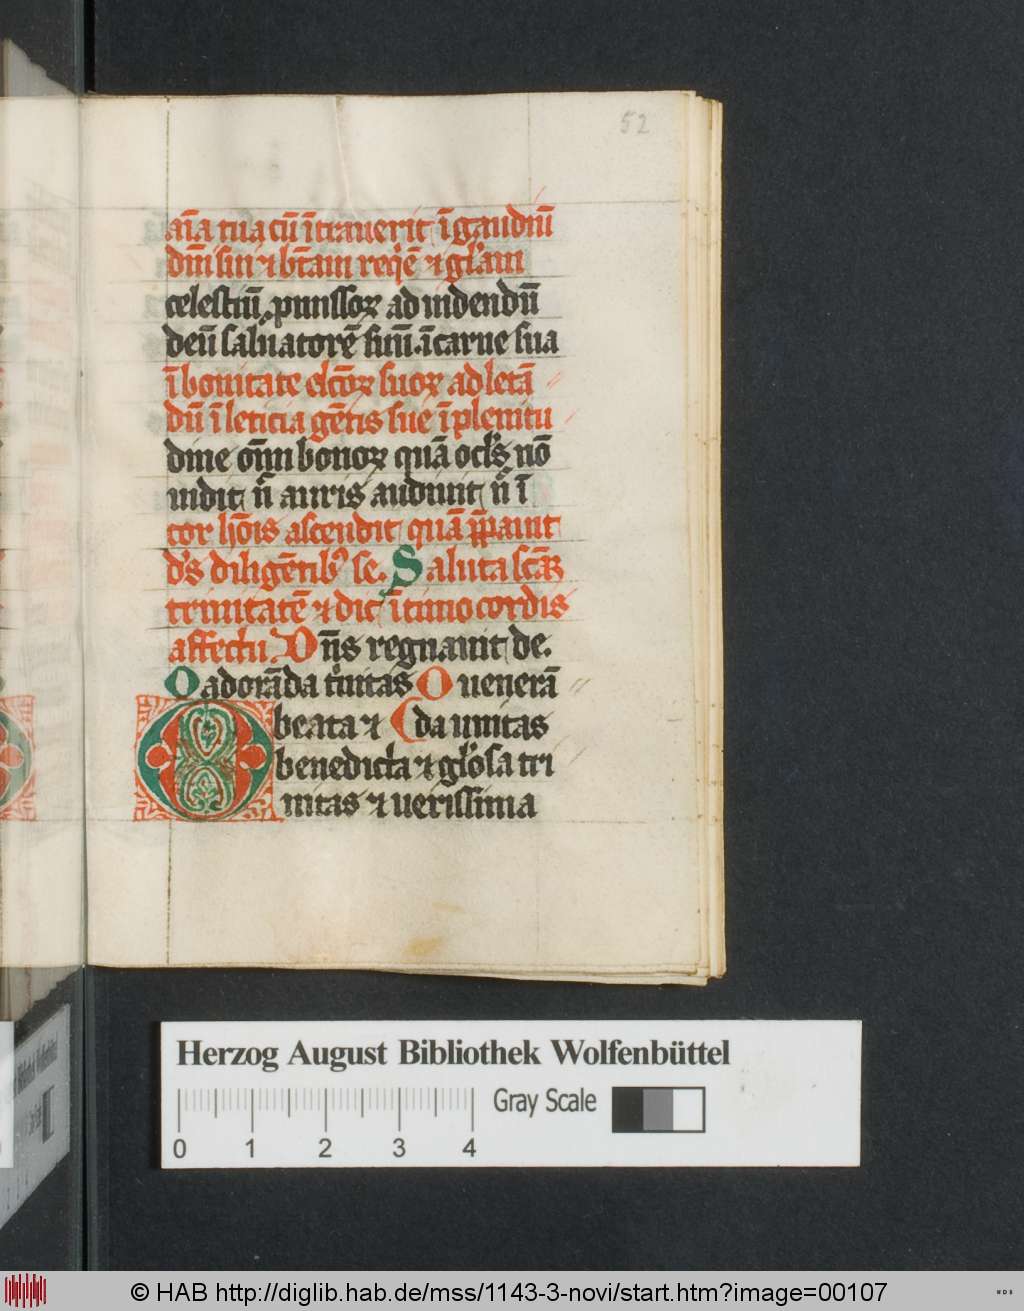 52
aı̄a tua cū ı̄trauerit ı̄gaudiū
dn̄i sui ⁊ btām reqᷓē ⁊ gl'am
celestiū punssoꝝ ad uidendū
deū saluatorē suū. ı̄carne sua
ı̄ bonitate elc̄oꝝ suoꝝ ad letā
dū ı̄ leticia gētis sue ı̄ plenitu
dine om̄i bonoꝝ quā ocl's nō
uidit n̄ auris audiuit n̄ ı̄
cor hōis ascendit quā p̄pauit
d's diligētibꝰ se. Saluta sc̄aꝫ
trinitatē ⁊ dic ı̄timo cordis
affectu. Dn̄s regnauit de.
O adorāda tͥnitas O uenerā
beata ⁊ da unitas
O benedicta ⁊ gl'osa tri
nitas ⁊ uerissima
Herzog August Bibliothek Wolfenbüttel
Gray Scale
0 1 2 3 4
© HAB http://diglib.hab.de/mss/1143-3-novi/start.htm?image=00107